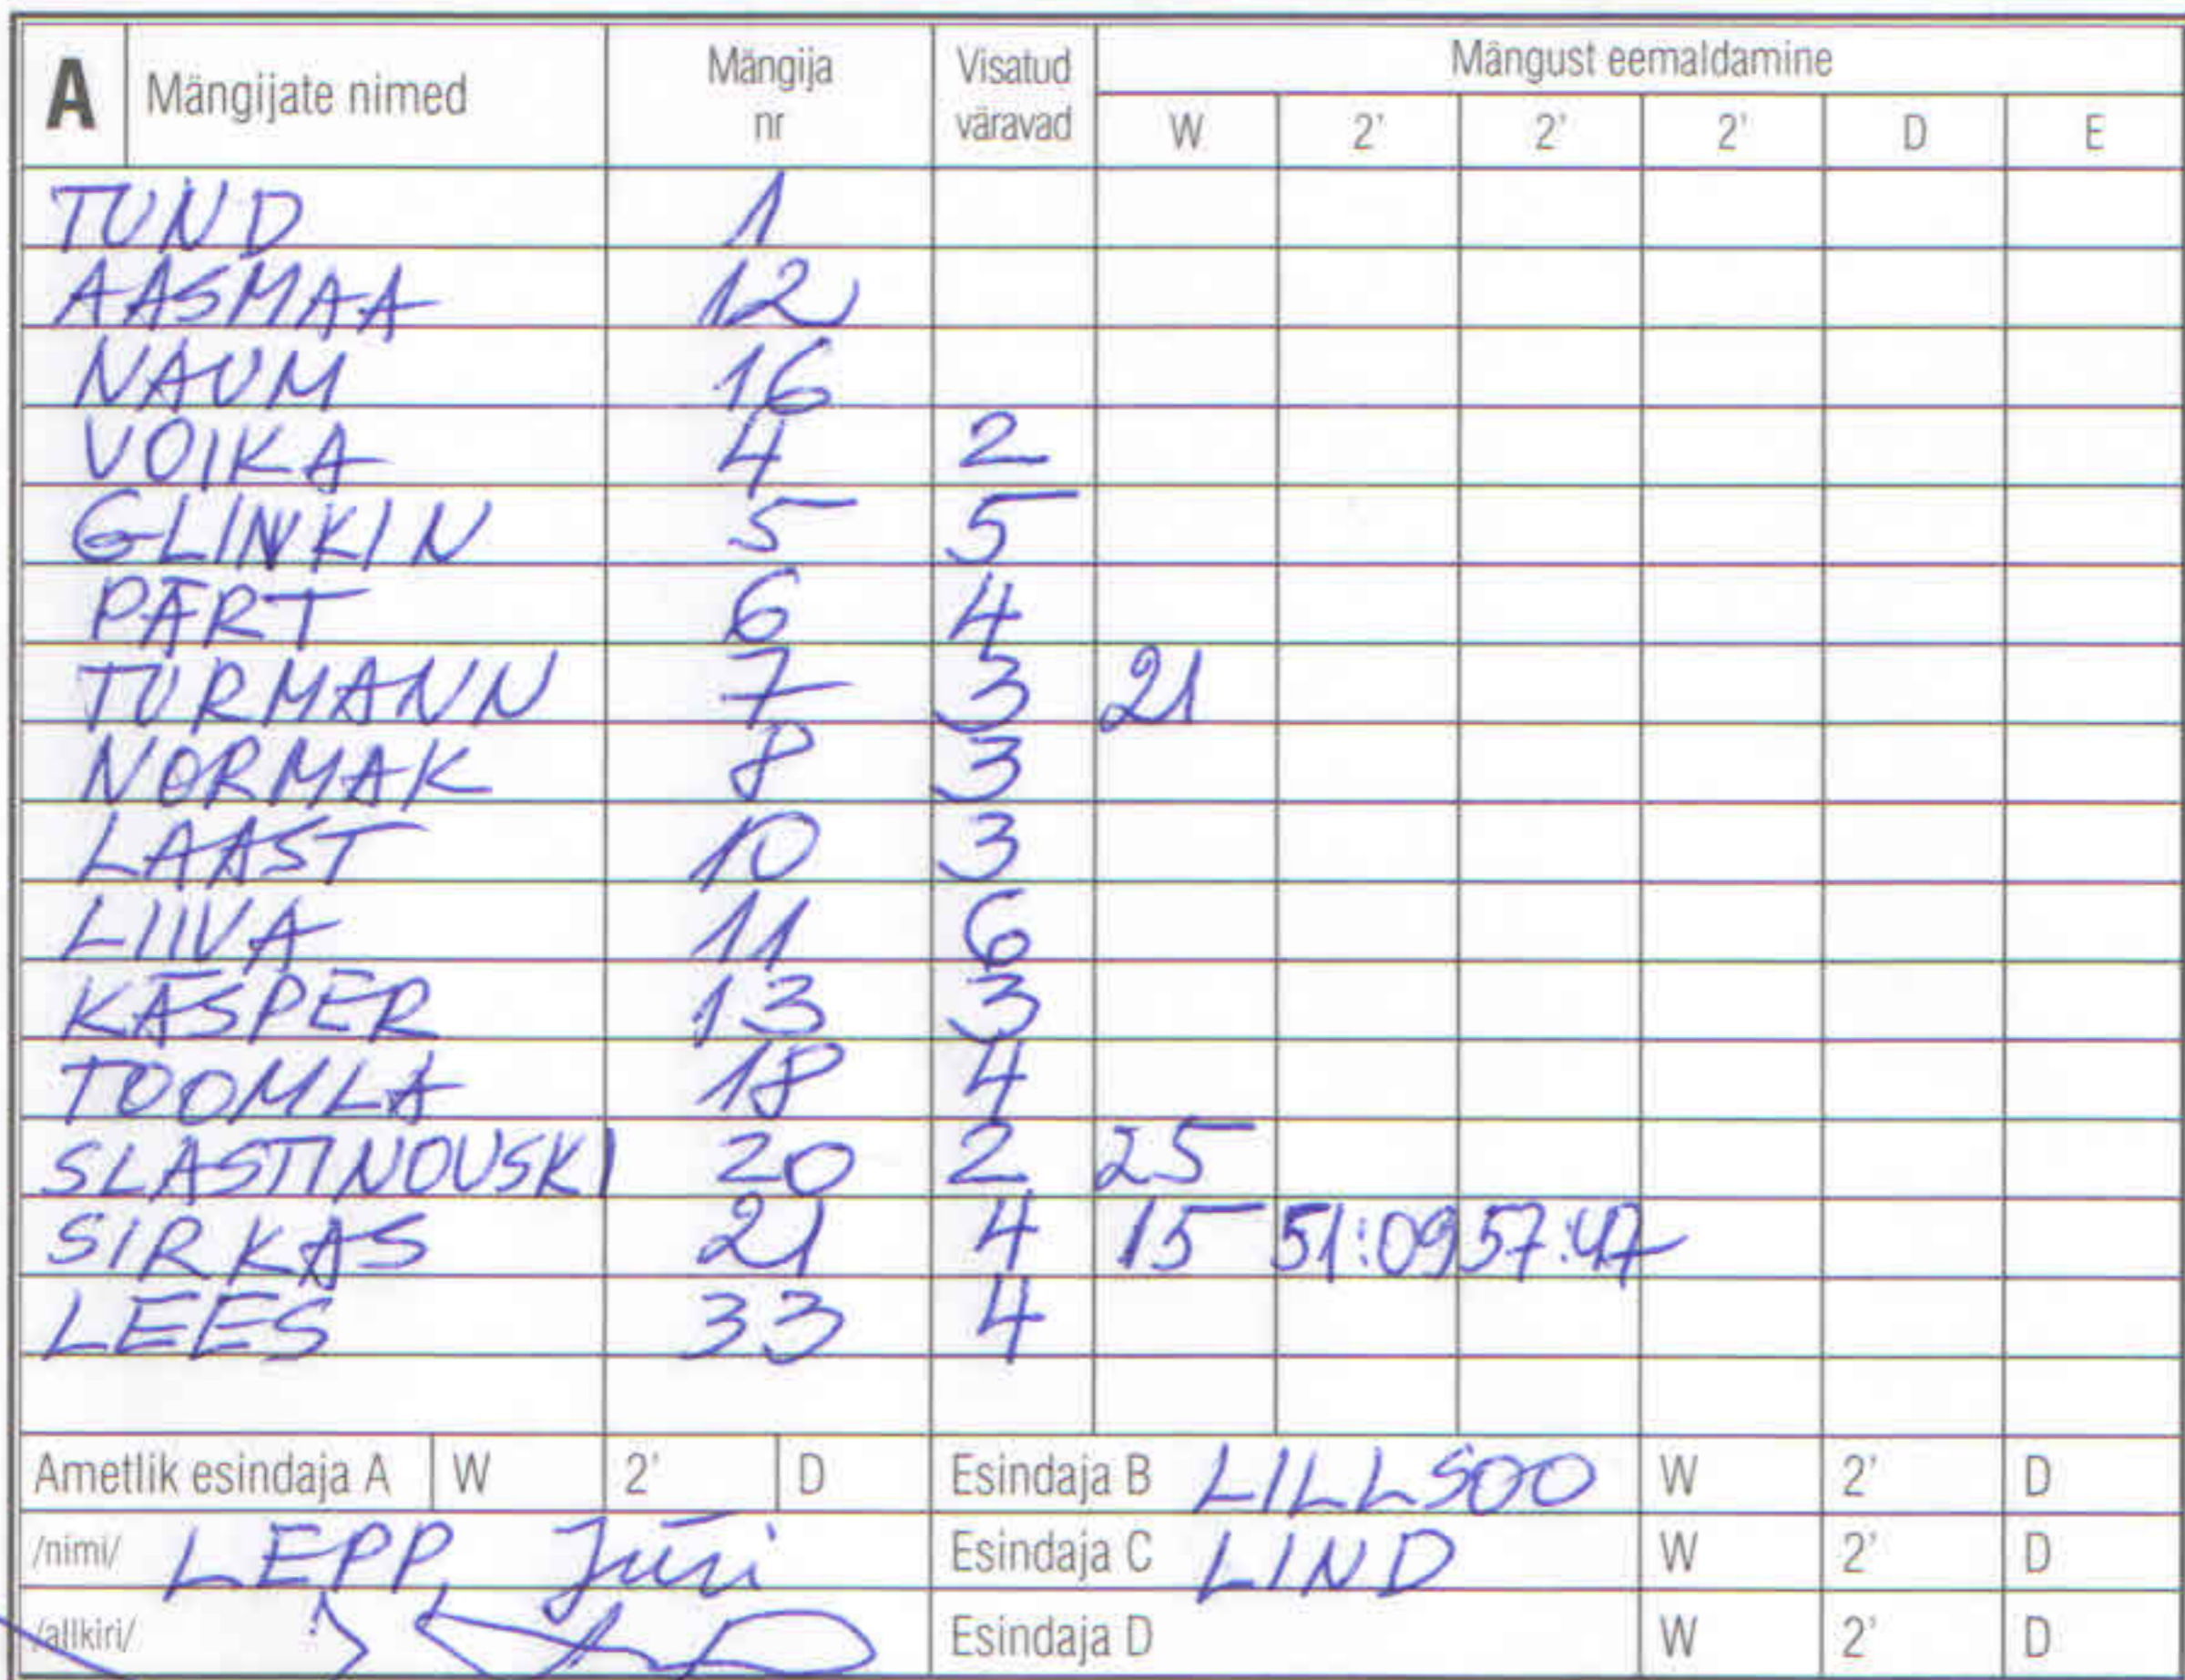 A Mängijate nimed Mängija nr Visatud väravad Mängust eemaldamine
W 2' 2' 2' D E
TUND 1
AASMAA 12
NAUM 16
VOIKA 4 2
GLINKIN 5 5
PÄRT 6 4
TURMANN 7 3 21
NORMAK 8 3
LAAST 10 3
LIIVA 11 6
KÄSPER 13 3
TOOMLA 18 4
SLASTINOVSKI 20 2 25
SIRKAS 21 4 15 51:09 57:47
LEES 33 4
Ametlik esindaja A W 2' D Esindaja B LILLSOO W 2' D
/nimi/ LEPP, Jüri Esindaja C LIND W 2' D
/allkiri/ Esindaja D W 2' D